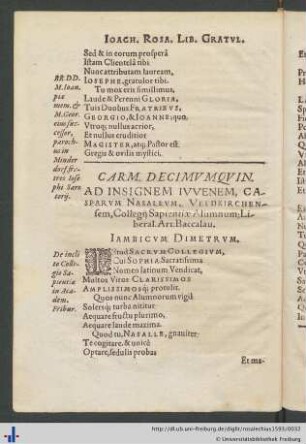 IOACH. ROSA. LIB. GRATVL.
Sed & in eorum prosperâ
Istam Clientelâ tibi
Nunc attributam lauream,
IOSEPHE, gratulor tibi.
Tu mox eris simillimus,
Laude & Perenni GLORIA,
Tuis Duobus FRATRIBVS,
GEORGIO, & IOANNE: quo
Vtroq; nullus acrior,
Et nullus eruditior
MAGISTER, atq; Pastor est
Gregis & ovilis mystici.
RR DD.
M. Ioan-
mem. &
M. Geor-
cessor,
paroch-
us in
Minder
phi Sar-
torij.
CARM. DECIMVMQVIN.
AD INSIGNEM IVVENEM, CA-
SPARVM NASALEVM, VELDKIRCHEN-
sem, Collegij Sapientiæ Alumnum; Li-
beral. Art. Baccalau.
IAMBICVM DIMETRVM.
De incli
to Colle-
gio Sa-
pientiæ
in Aca-
dem.
Fribur.
SACRVM COLLEGIVM,
Cui SOPHIA Sacratissima
Nomen latinum Vendicat,
Multos Viros CLARISSIMOS
AMPLISSIMOSq; protulit.
Quos nunc Alumnorum vigil
Solersq; turba nititur
Aequare fructu plurimo,
Aequare laude maxima.
Quod tu, NASALLE, gnauiter
Te cogitare, & unicè
Optare, sedulis probas
Et ma-
http://dl.ub.uni-freiburg.de/diglit/rosalechius1593/0032
© Universitätsbibliothek Freiburg